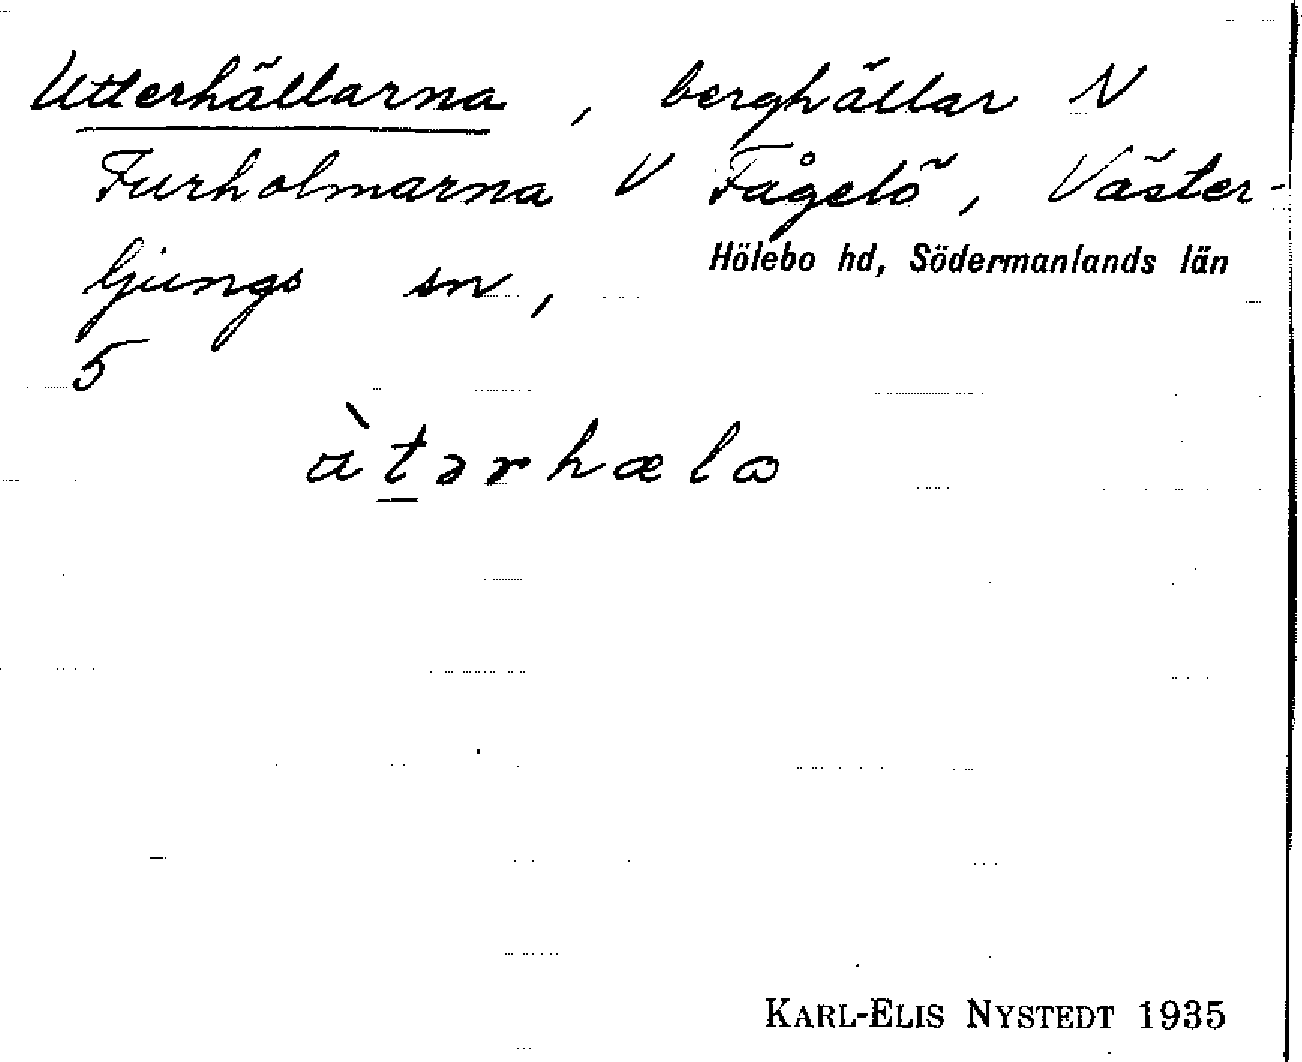 Utterhällarna, berghällar N
Furholmarna V Fågelö, Väster-
ljungs sn, Hölebo hd, Södermanlands län
5
ùtərhælɷ
KARL-ELIS NYSTEDT 1935